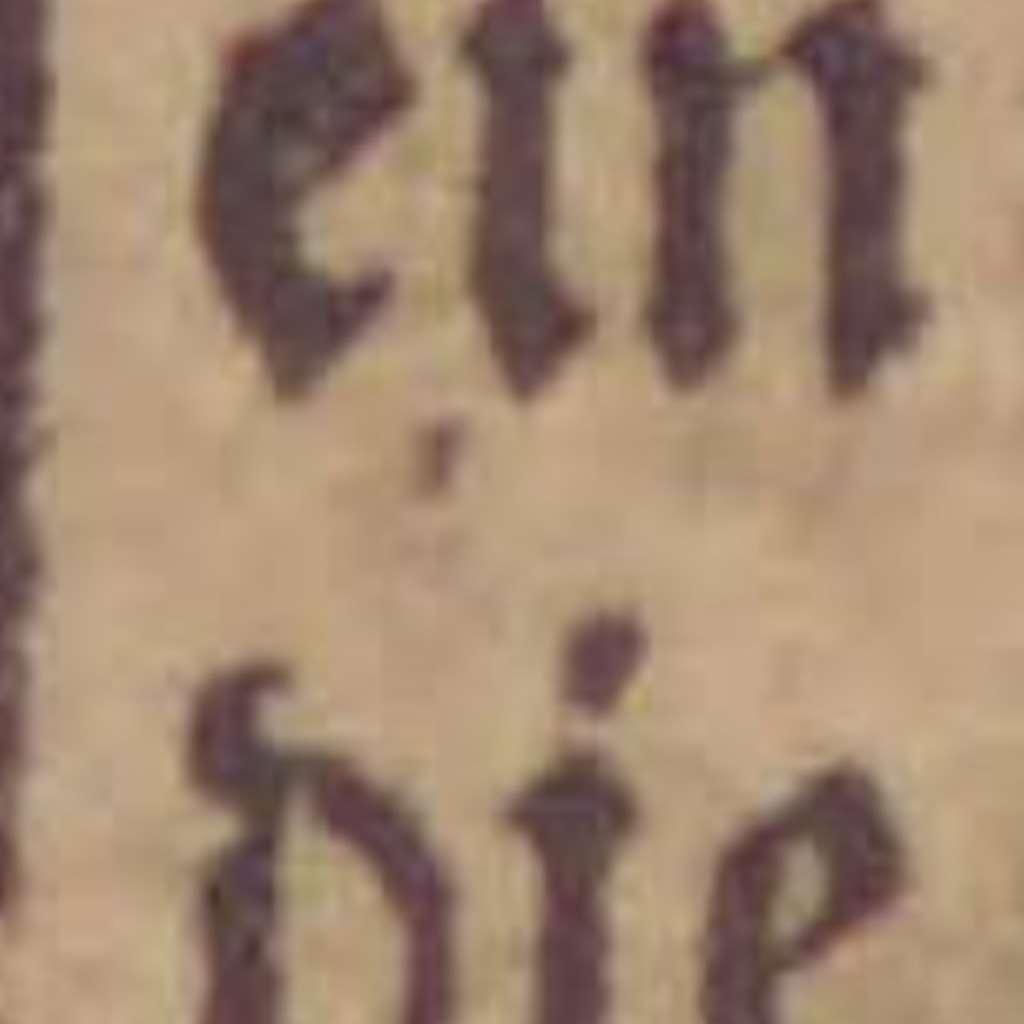 ein
die